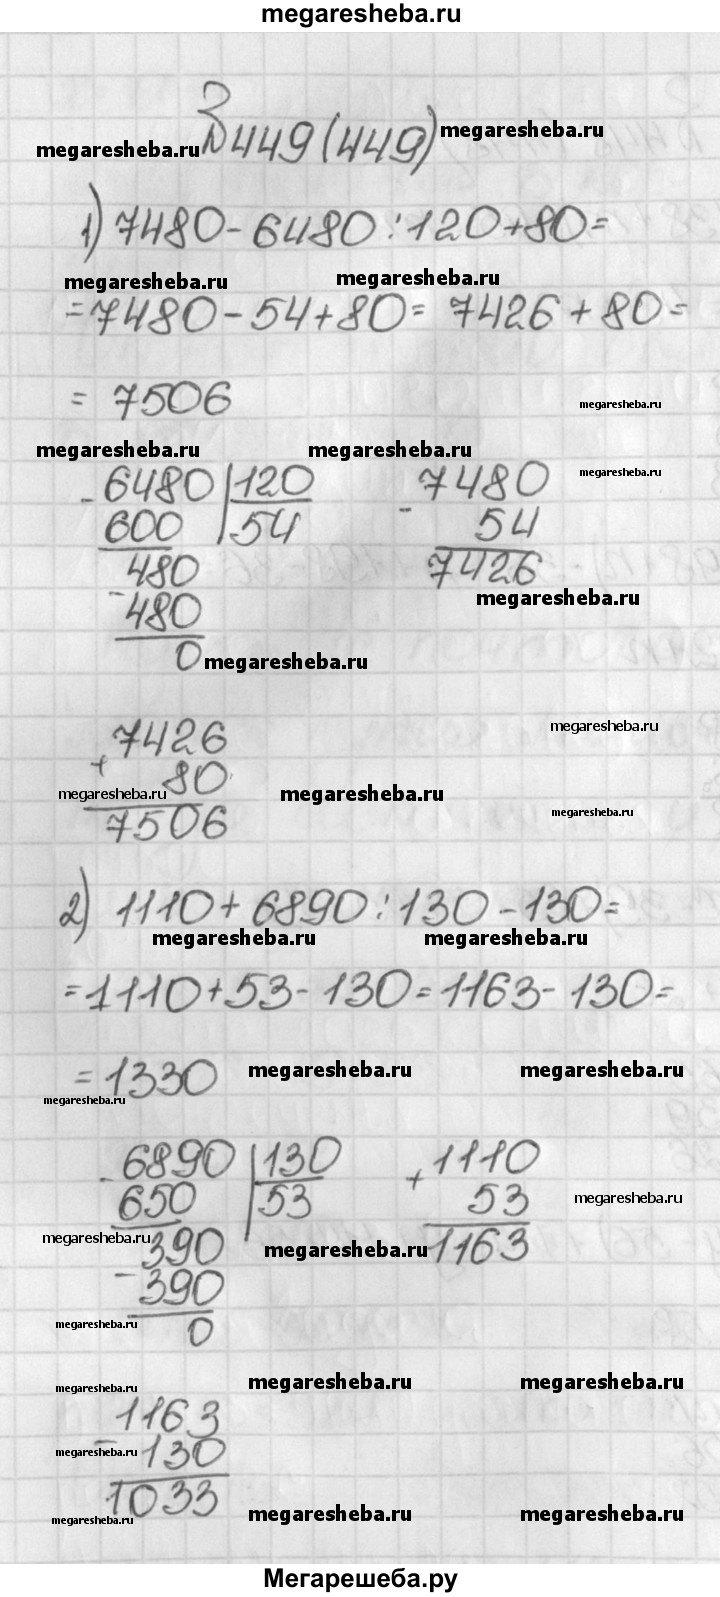 megaresheba.ru
№449(449) megaresheba.ru
megaresheba.ru
1) 7480-6480:120+80=
megaresheba.ru megaresheba.ru
=7480-54+80= 7426+80=
= 7506 megaresheba.ru
megaresheba.ru megaresheba.ru megaresheba.ru
-6480|120 -7480
600 |54 54
480 7426
-480 megaresheba.ru
0 megaresheba.ru
megaresheba.ru
+7426
80
megaresheba.ru megaresheba.ru
7506 megaresheba.ru
2) 1110+6890:130-130=
megaresheba.ru megaresheba.ru
=1110+53-130=1163-130=
=1330 megaresheba.ru megaresheba.ru
megaresheba.ru
-6890|130 +1110
650 |53 53 megaresheba.ru
megaresheba.ru 390 megaresheba.ru 1163
-390
megaresheba.ru 0
megaresheba.ru megaresheba.ru megaresheba.ru
-1163
megaresheba.ru 130
1033
megaresheba.ru megaresheba.ru megaresheba.ru
Мегарешеба.ру